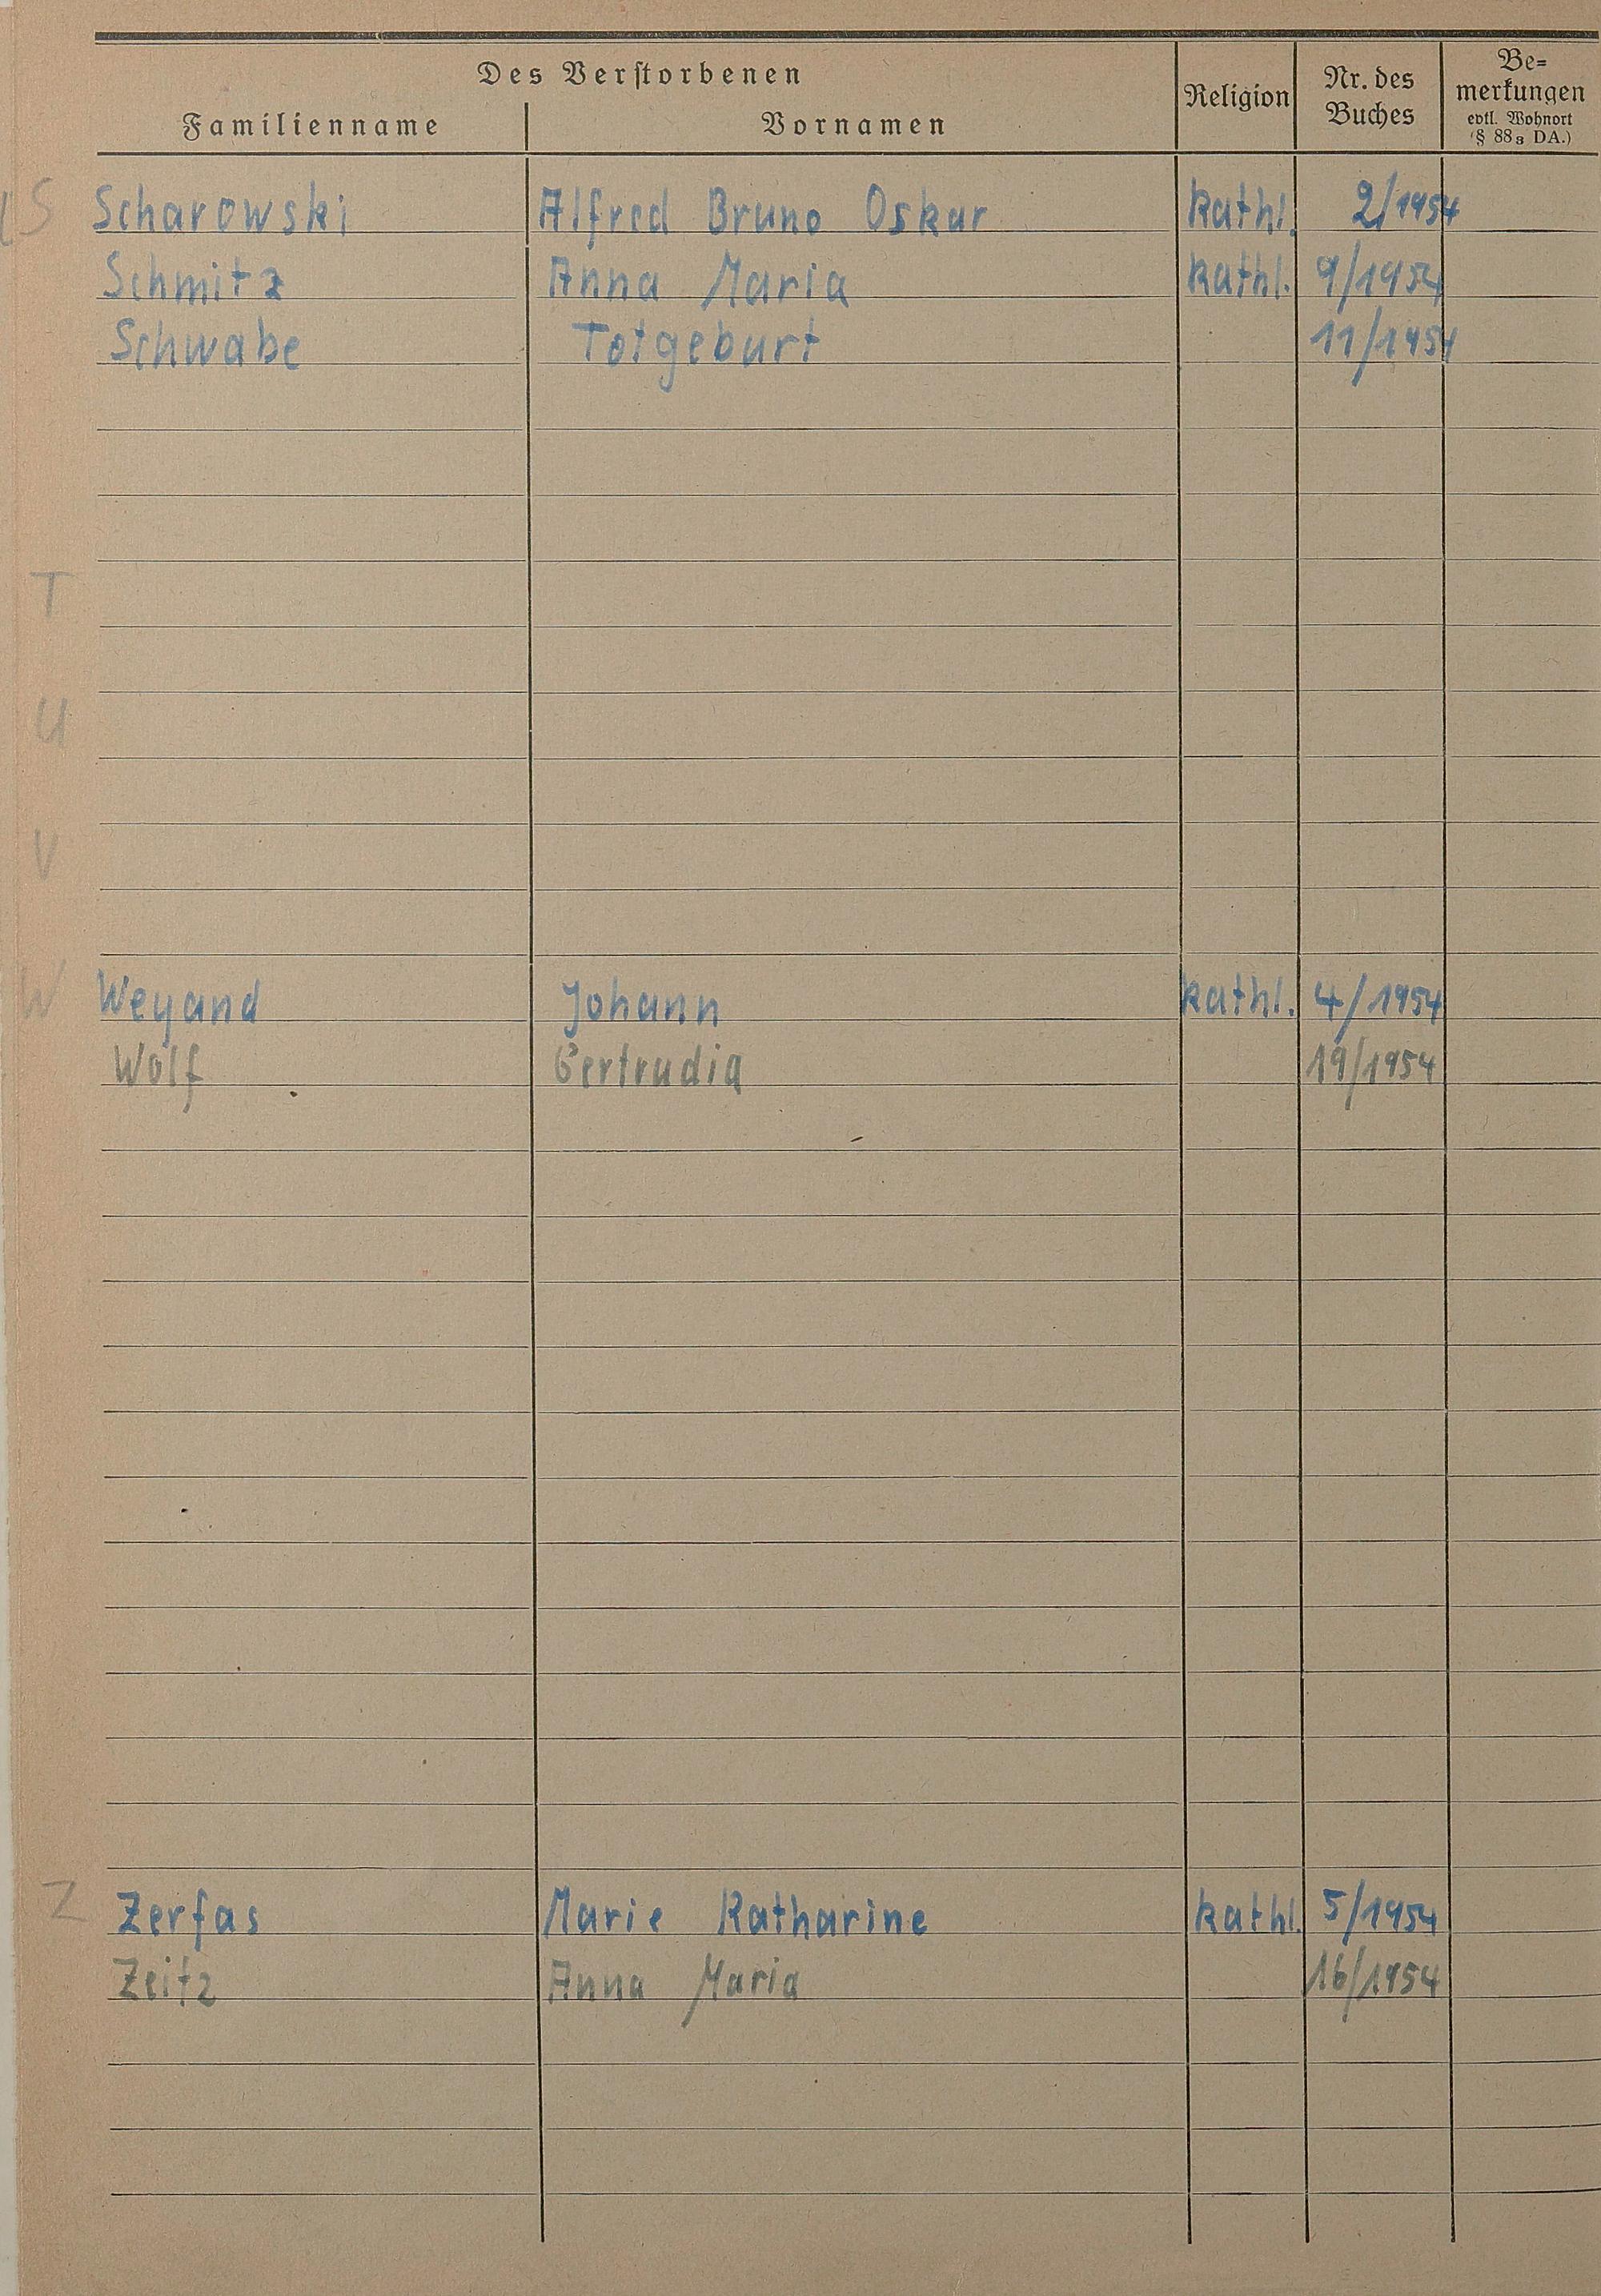 Des Verstorbenen
Familienname Vornamen Religion Nr. des Buches Be=
merkungen
evtl. Wohnort
(§ 88₃ DA.)
S Scharowski Alfred Bruno Oskar kathl. 2/1954
Schmitz Anna Maria kathl. 9/1954
Schwabe Totgeburt 11/1954
T
U
V
W Weyand Johann kathl. 4/1954
Wolf Gertrudia 19/1954
Z Zerfas Marie Katharine kathl. 5/1954
Zeitz Anna Maria 16/1954